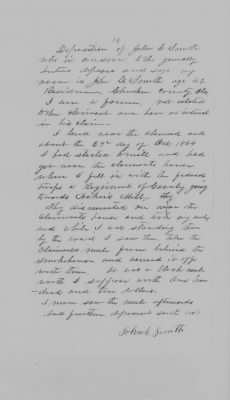 Deposition of John C Smith
who in answer to the generally
says my
name is John C Smith age 42
Residence Cherokee County Ala
I am a farmer, not related
to the claimant and have no interest
in his claim.
I lived near the claimant and
about the 29th day of Oct 1864
I had started and had
got near the claimants house
when I fell in with the federal
troops a Regiment of Cavalry going
towards
They dismounted on near the
claimants house and
and while I was standing there
by the road I saw them take the
claimants mule from behind the
smokehouse and carried it off
with them. It was a black mule
worth I suppose worth One hun
dred and ten dollars.
I never saw the mule afterwards
and further deponent saith not.
John C Smith